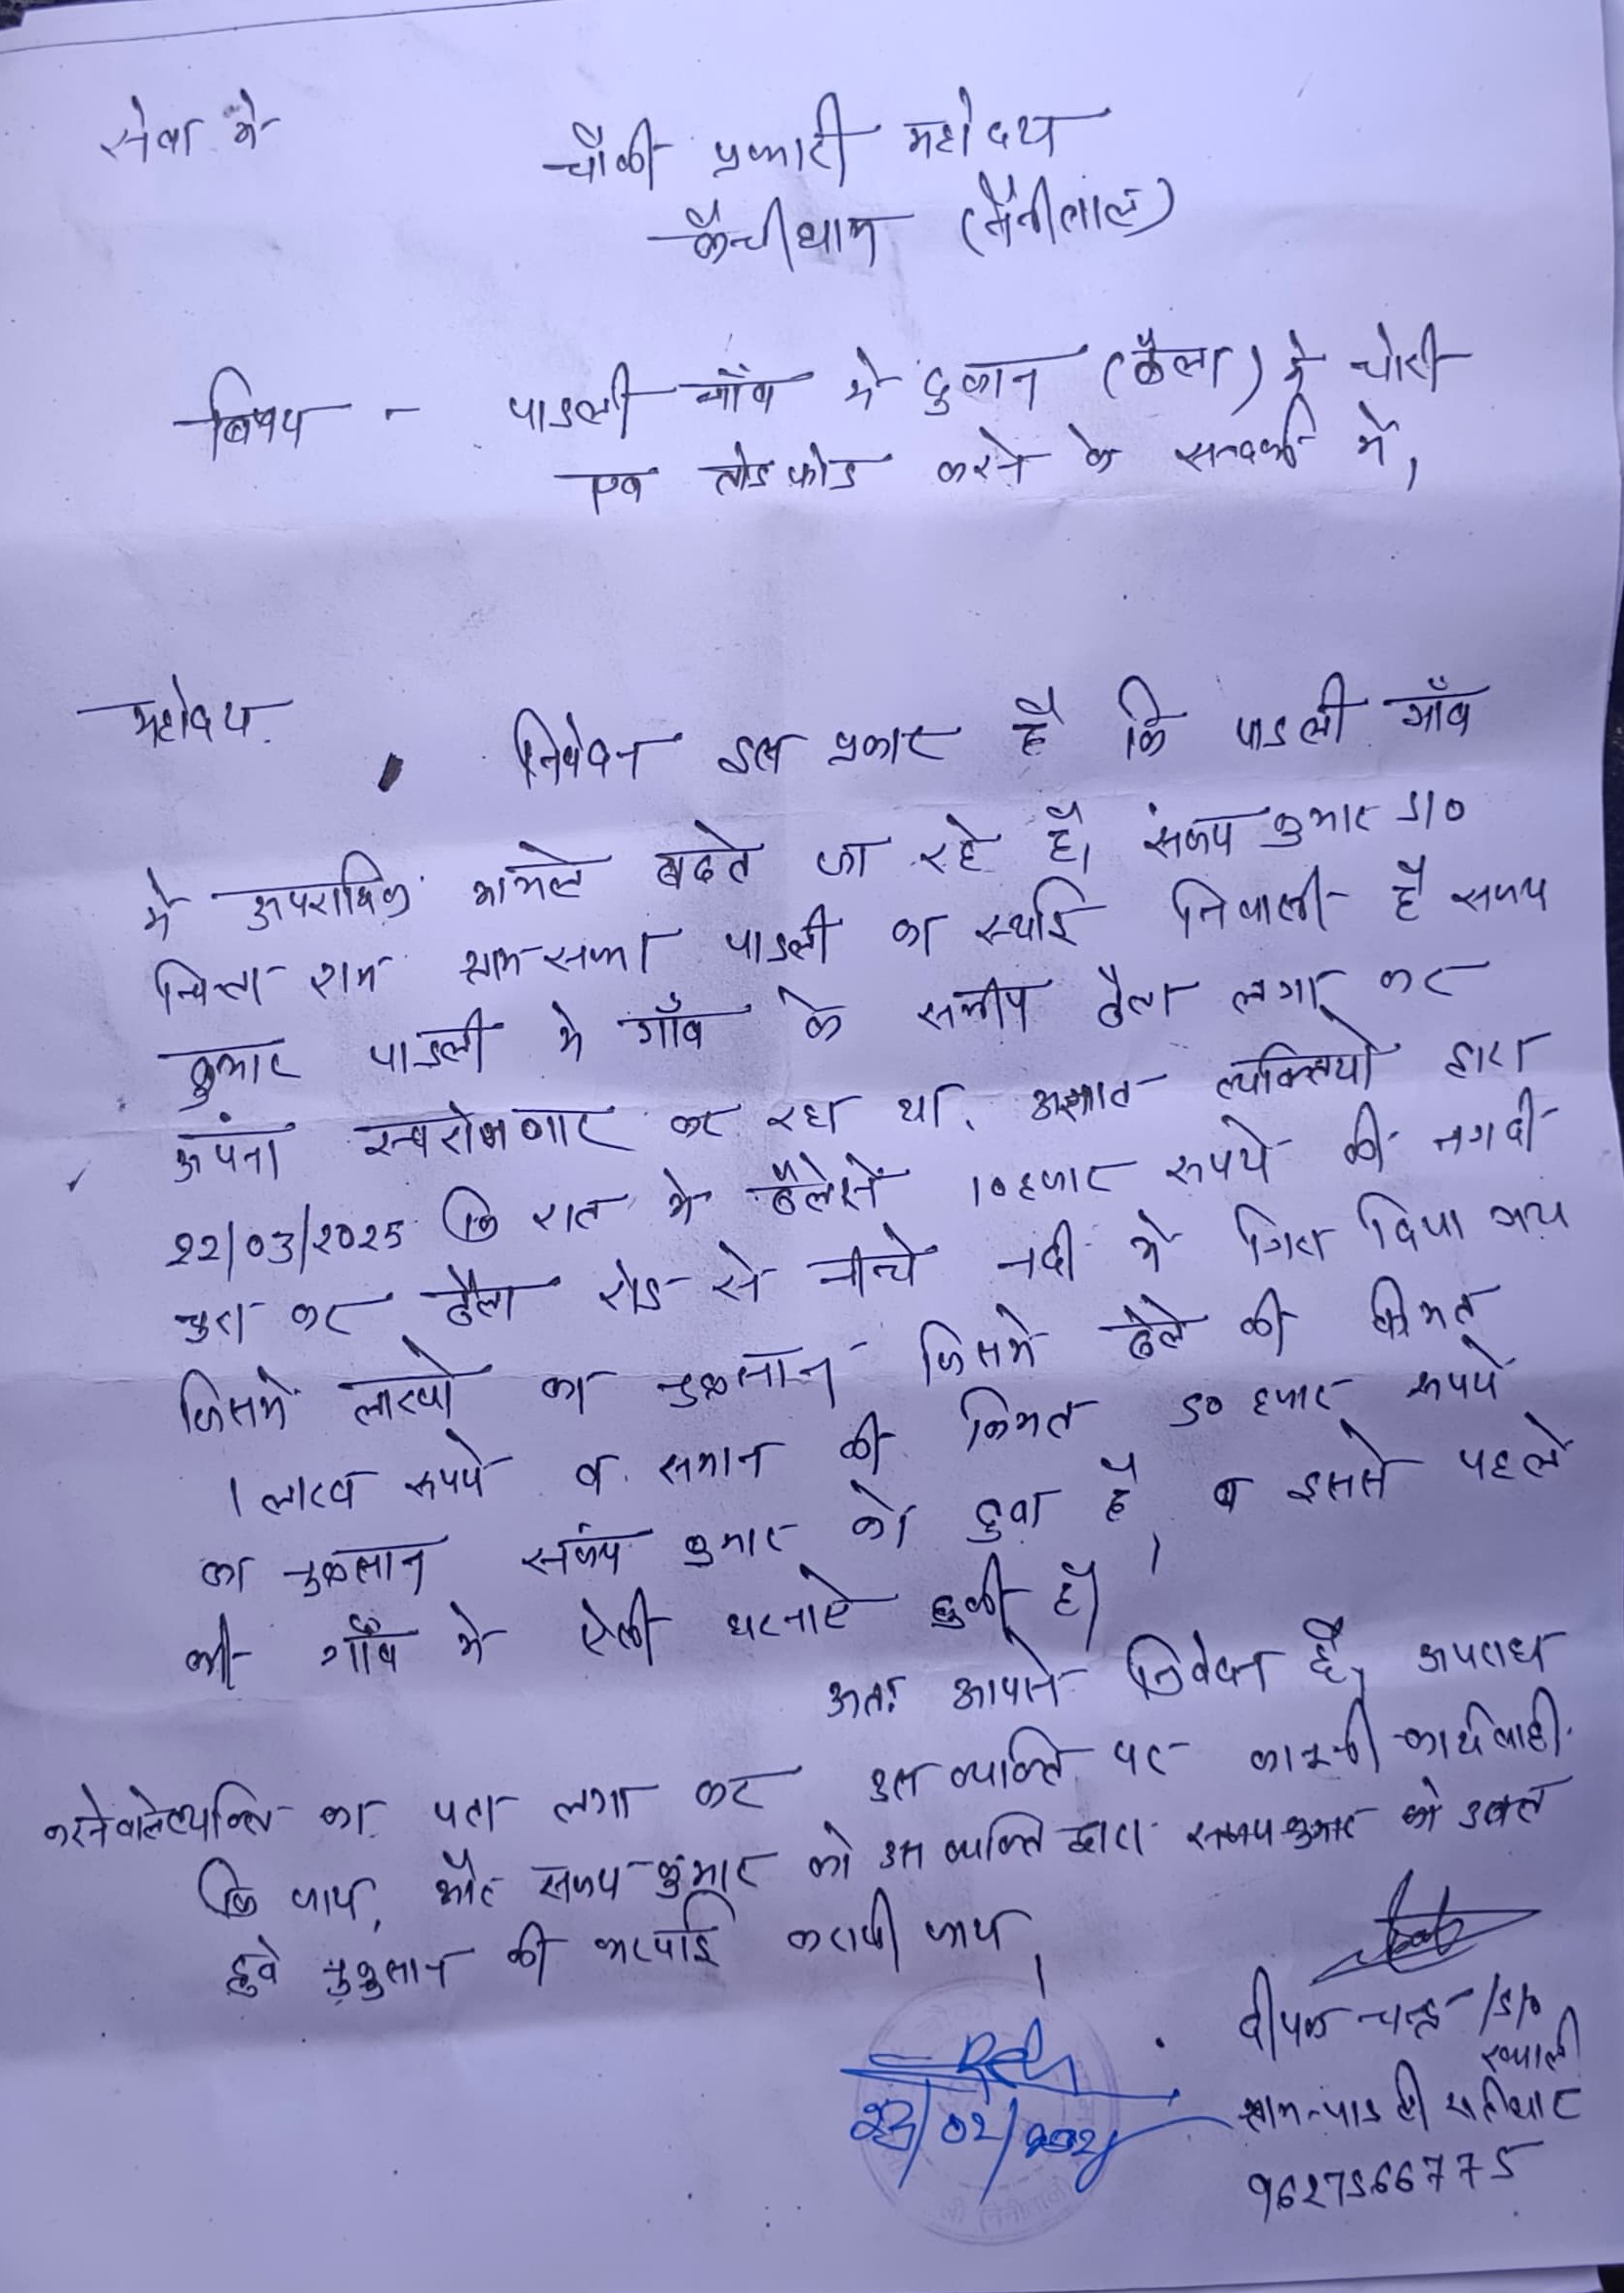 सेवा मे
चौकी प्रभारी महोदय
कैन्चीधाम (नैनीताल)
विषय - पाडली गाँव मे दुकान (ठैला) मे चोरी
एव तोडफोड करने के सन्दर्भ मे,
महोदय.
निवेदन इस प्रकार है कि पाडली गाँव
मे अपराधिक मामले बढते जा रहे है। संजय कुमार S/O
राम ग्राम सभा पाडली का स्थाई निवासी है सजय
कुमार पाडली मे गाँव के समीप ठैला लगा कर
अपना स्वरोजगार कर रहा था. अज्ञात व्यक्तियो द्वारा
22/03/2025 कि रात मे ठैलेसे 10हजार रूपये की नगदी
चुरा कर ठैला रोड से नीचे नदी मे गिरा दिया गय
जिसमे लाखो का नुकसान जिसमे ठेले की कीमत
1 लाख रूपये व समान की किमत 50 हजार रूपये
का नुकसान संजय कुमार को हुवा है, व इससे पहले
भी गाँव मे ऐसी घटनाऐ हुकी है।
अतः आपसे निवेदन है, अपराध
करनेवालेव्यक्ति का पता लगा कर उस व्यक्ति पर कानूनी कार्यवाही
कि जाय, और सजय कुमार को उस व्यक्ति द्वारा सजय कुमार को
हुवे नुकुसान की भरपाई करायी जाय,
दीपक चन्द्र /S/O
ख्याली
ग्राम-पाडली
23/02/2025
9627566775